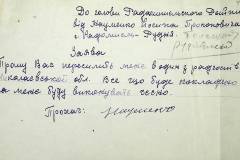 До голови Радомишельського
від Науменко Йосипа Прокоповича
м. Радомисль - Рудня.
Заява
Прошу Вас переселить мене в один з радгоспів
Миколаєвської обл. Все що буде покладено
на мене буду виконувать чесно.
Прохач: Науменко